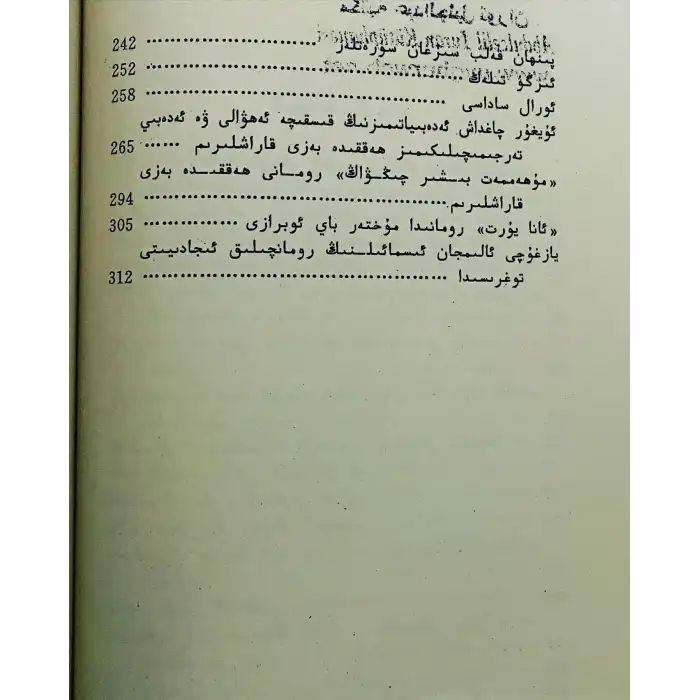 مكتبة عبدالجليل توران
پىنھان قەلب سىزغان سۈرەتلەر ............ 242
ئىزگۈ تىلەك ............ 252
ئورال ساداسى ............ 258
ئۇيغۇر چاغداش ئەدەبىياتىمىزنىڭ قىسقىچە ئەھۋالى ۋە ئەدەبىي
تەرجىمىچىلىكىمىز ھەققىدە بەزى قاراشلىرىم ...... 265
«مۇھەممەت بىشىر چىڭۋاڭ» رومانى ھەققىدە بەزى
قاراشلىرىم ............ 294
«ئانا يۇرت» رومانىدا مۇختەر باي ئوبرازى ............ 305
يازغۇچى ئالىمجان ئىسمائىلنىڭ رومانچىلىق ئىجادىيىتى
توغرىسىدا ............ 312